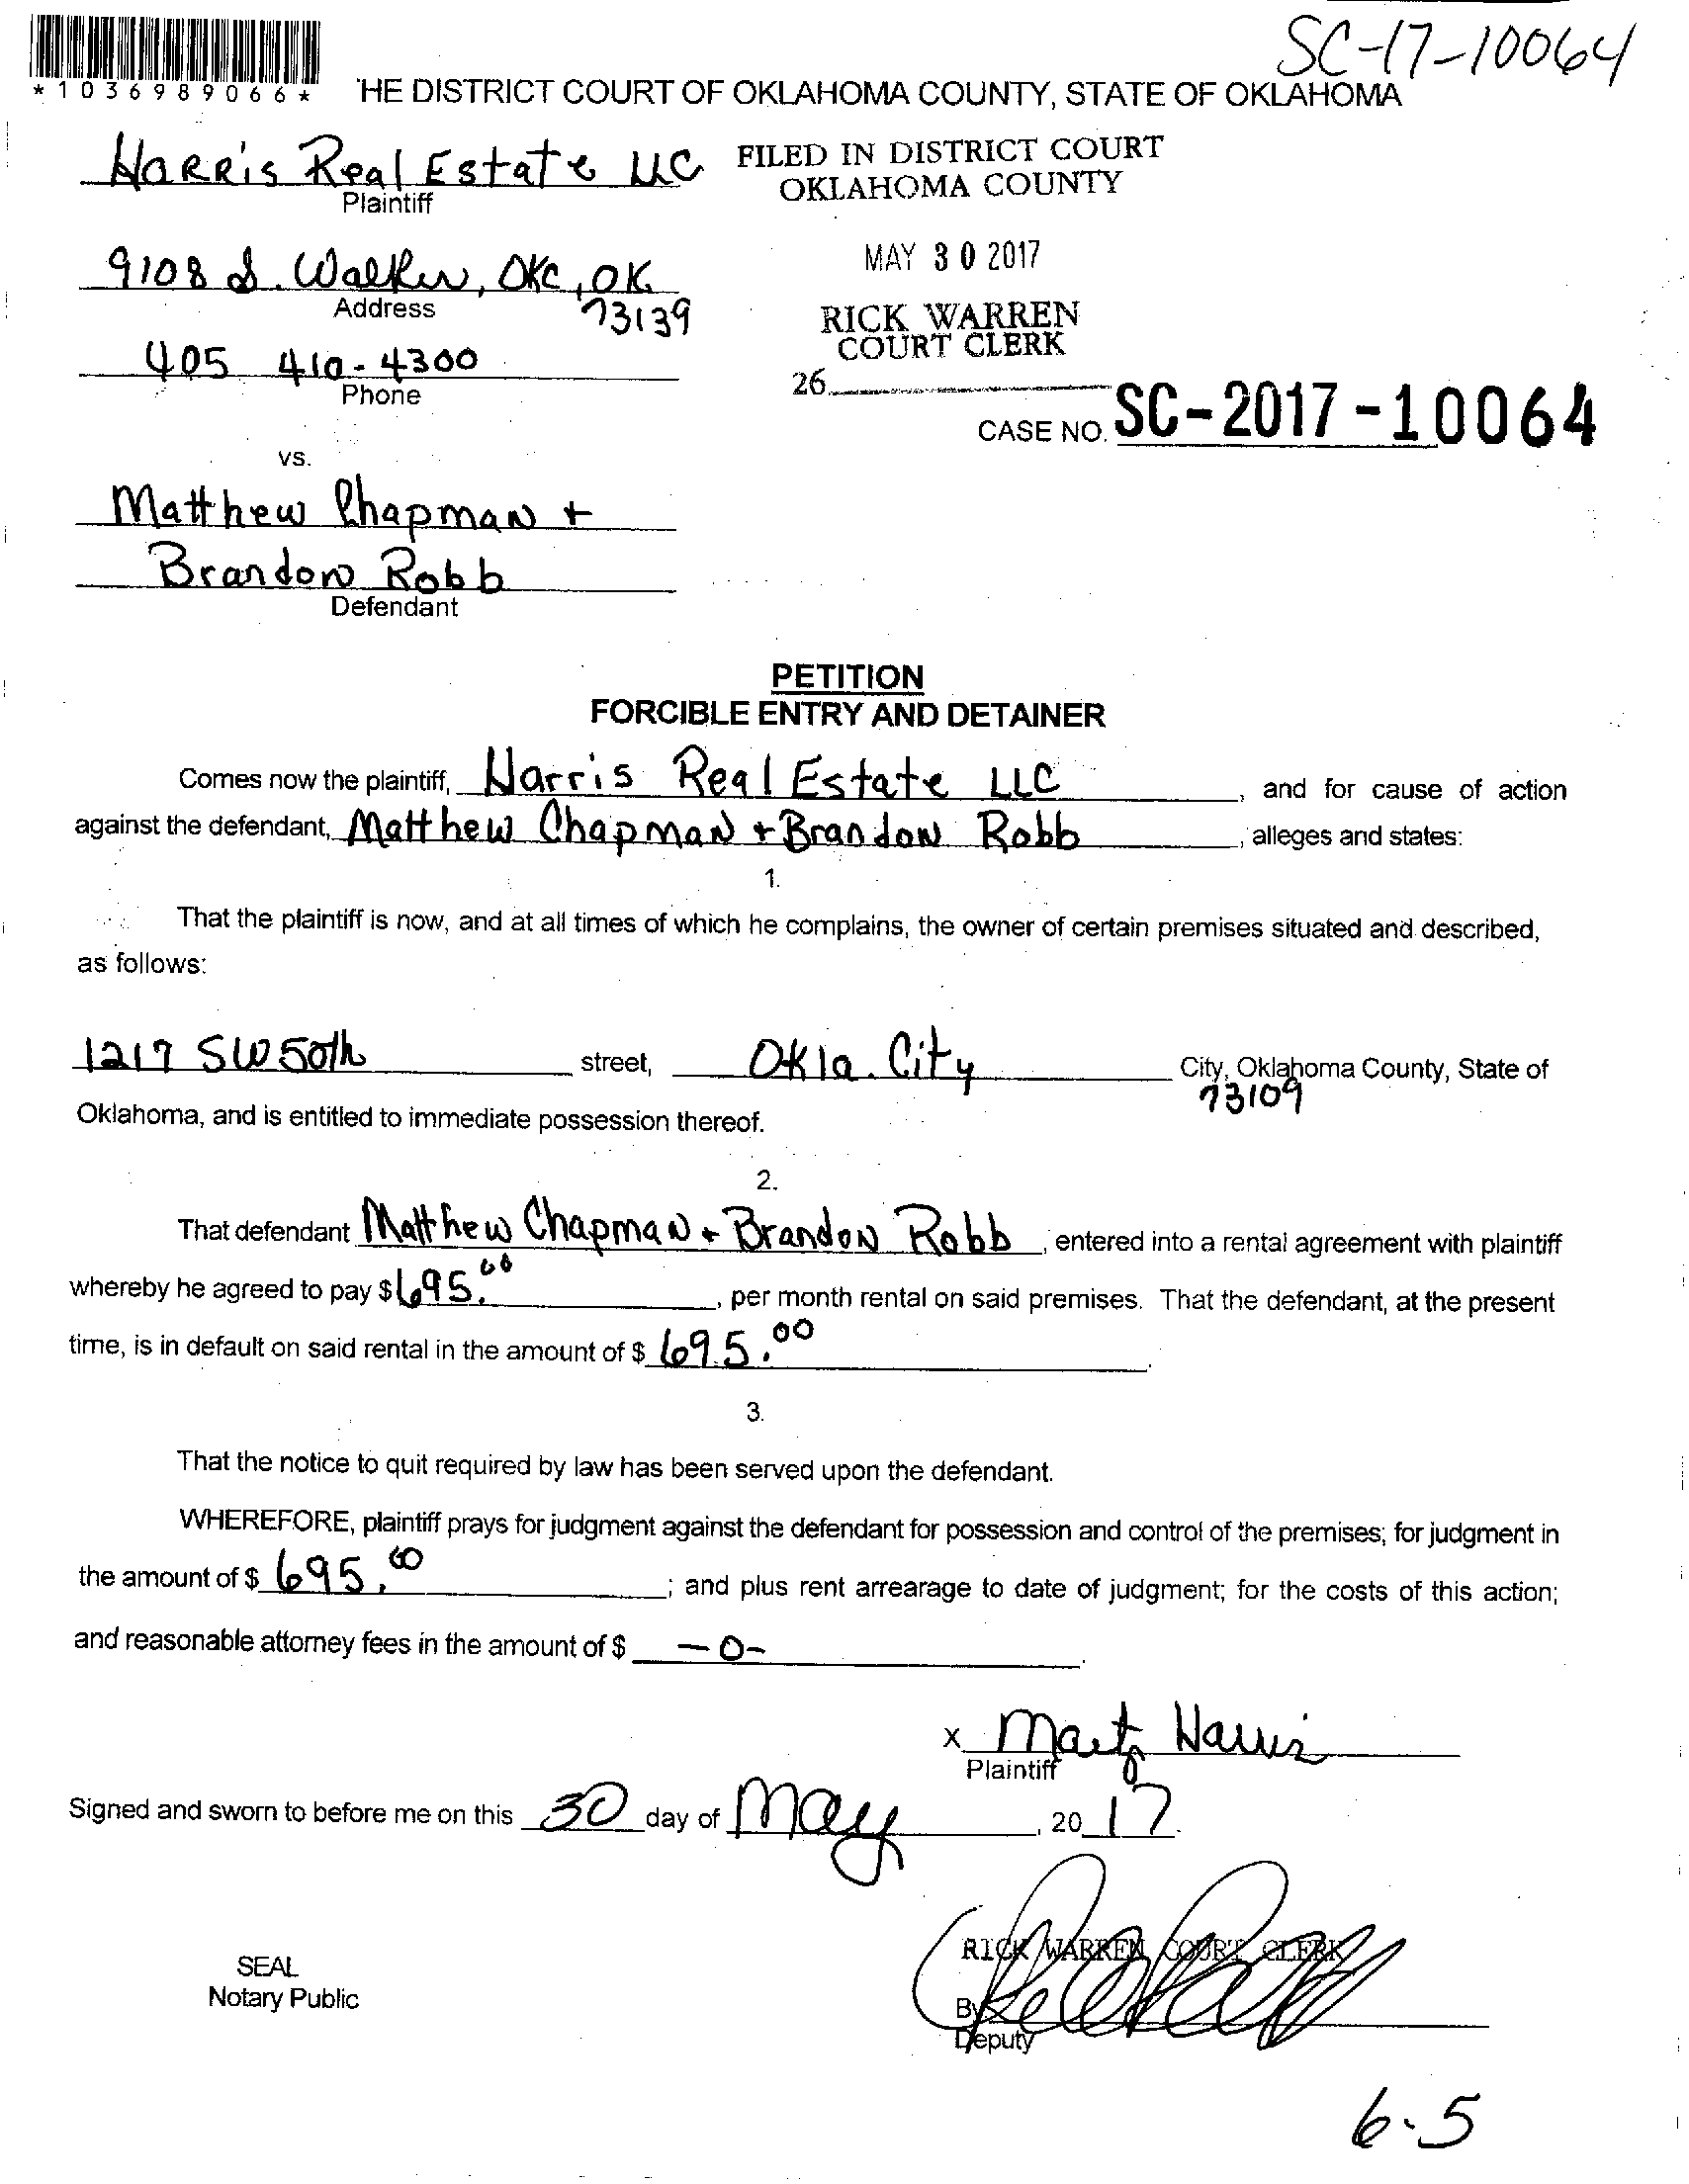 SC-17-10064
*1036989066*
'HE DISTRICT COURT OF OKLAHOMA COUNTY, STATE OF OKLAHOMA
Harris Real Estate LLC
Plaintiff
FILED IN DISTRICT COURT
OKLAHOMA COUNTY
9108 S. Walker, OKC, OK
73139
Address
MAY 30 2017
RICK WARREN
COURT CLERK
405 410-4300
Phone
26
CASE NO. SC-2017-10064
vs.
Matthew Chapman +
Brandon Robb
Defendant
PETITION
FORCIBLE ENTRY AND DETAINER
Comes now the plaintiff, Harris Real Estate LLC, and for cause of action
against the defendant, Matthew Chapman + Brandon Robb, alleges and states:
1.
That the plaintiff is now, and at all times of which he complains, the owner of certain premises situated and described,
as follows:
1217 SW 50th street, Okla. City City, Oklahoma County, State of
73109
Oklahoma, and is entitled to immediate possession thereof.
2.
That defendant Matthew Chapman + Brandon Robb, entered into a rental agreement with plaintiff
whereby he agreed to pay $695.00, per month rental on said premises. That the defendant, at the present
time, is in default on said rental in the amount of $ 695.00.
3.
That the notice to quit required by law has been served upon the defendant.
WHEREFORE, plaintiff prays for judgment against the defendant for possession and control of the premises; for judgment in
the amount of $ 695.00; and plus rent arrearage to date of judgment; for the costs of this action;
and reasonable attorney fees in the amount of $ -0-.
x Marty Harris
Plaintiff
Signed and sworn to before me on this 30 day of May, 2017.
RICK WARREN, COURT CLERK
SEAL
Notary Public
By
Deputy
6-5